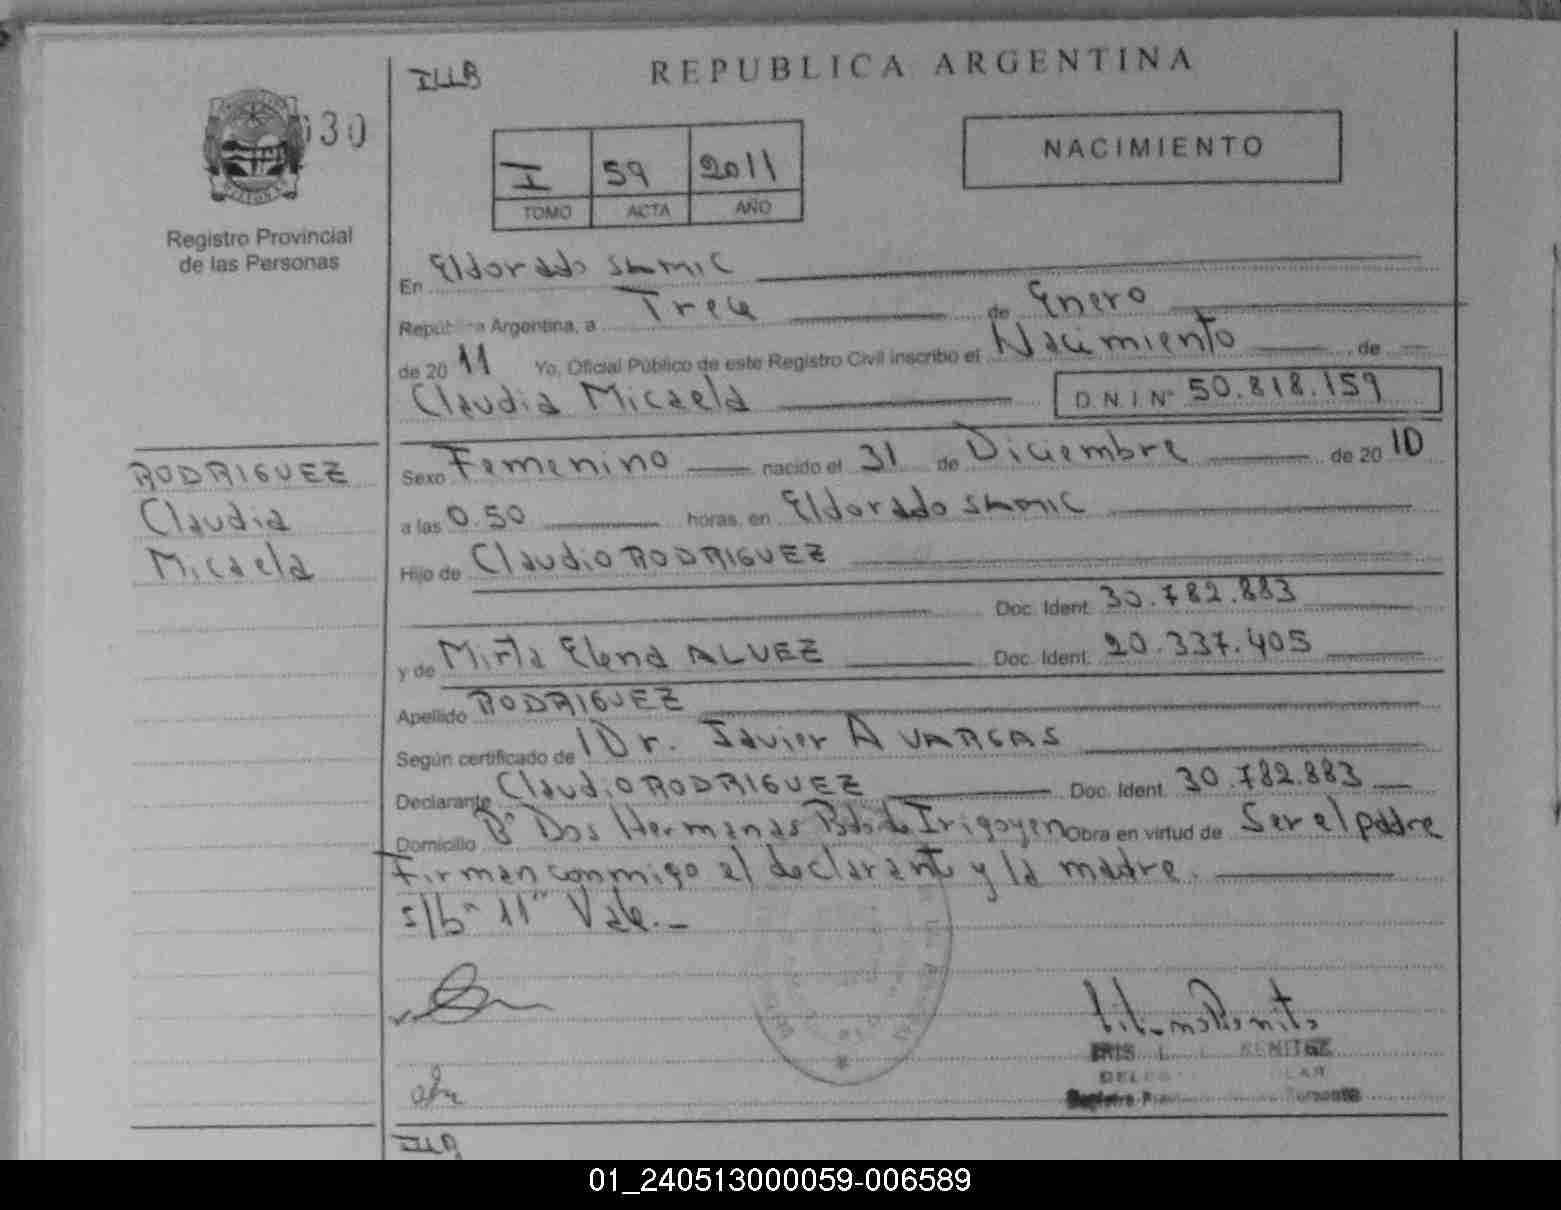 ILLB
REPUBLICA ARGENTINA
030
I 59 2011
TOMO ACTA AÑO
NACIMIENTO
Registro Provincial
de las Personas
En Eldorado SHMIC
República Argentina, a Trece de Enero
de 2011 Yo, Oficial Público de este Registro Civil inscribo el Nacimiento de
Claudia Micaela D.N.I Nº 50.818.159
RODRIGUEZ
Claudia
Micaela
Sexo Femenino nacido el 31 de Diciembre de 2010
a las 0.50 horas, en Eldorado
Hijo de Claudio RODRIGUEZ
Doc. Ident. 30.782.883
y de Mirta Elena ALVEZ Doc. Ident. 20.337.405
Apellido RODRIGUEZ
Según certificado de Dr. Javier A VARGAS
Declarante Claudio RODRIGUEZ Doc. Ident. 30.782.883
Domicilio Bº Dos Hermanas Bdo de Irigoyen Obra en virtud de Ser el padre
Firman conmigo el declarante y la madre.
s/b "11" Vale.
BENITEZ
01_240513000059-006589